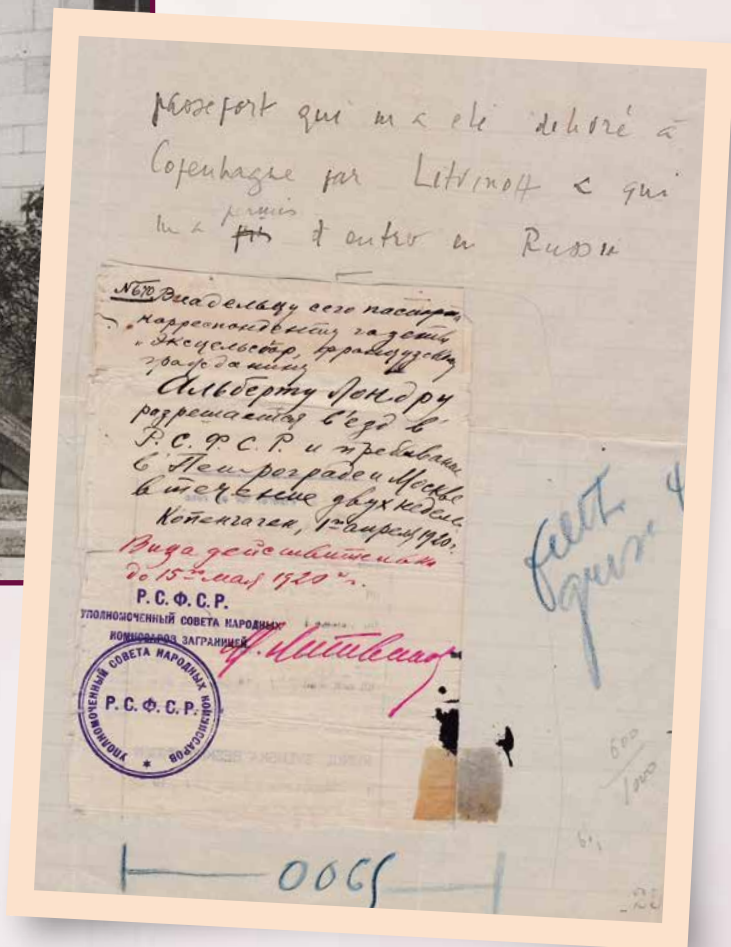 passeport qui m a été délivré à
Copenhague par Litvinoff & qui
m a permis d entrer en Russie
№ 670 Владельцу сего паспорта
корреспонденту газеты
"Эксцельсиор, французскому
гражданину
Альберту Лондру
разрешается в'езд в
Р.С.Ф.С.Р. и пребывание
в Петрограде и Москве
в течение двух недель.
Копенгаген, 1го апреля 1920г.
Виза действительна
до 15го мая 1920го г.
Р. С. Ф. С. Р.
УПОЛНОМОЧЕННЫЙ СОВЕТА НАРОДНЫХ
КОМИССАРОВ ЗАГРАНИЦЕЙ
М. Литвинов
УПОЛНОМОЧЕННЫЙ СОВЕТА НАРОДНЫХ КОМИССАРОВ
Р. С. Ф. С. Р.
600
1000
0065